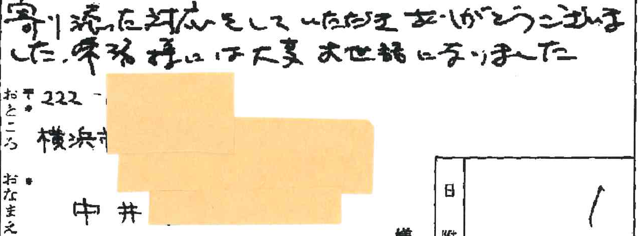 寄り添った対応をしていただきありがとうございま
した。常務様には大変お世話になりました
おところ 〒222-
横浜市
おなまえ 中井
様
日附